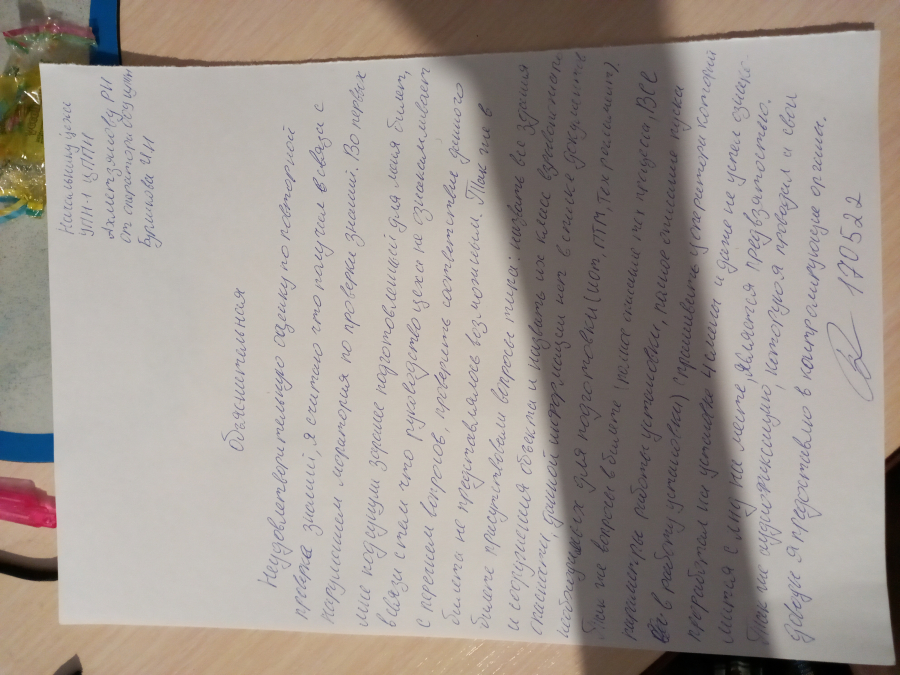 Начальнику цеха
УПН-1 ЦППН
Ахметзянову РИ
от оператора ведущ
Бурмкова ЧП
Объяснительная
Неудовлетворительную оценку по повторной
проверке знаний, я считаю что получил в связи с
нарушением моратория по проверки знаний. Во первых
мне кодецущи заранее подготовленный для меня билет,
в связи с тем что руководство цеха не ознакамливает
с перечнем вопросов, проверить соответствие данного
билета не представлялось возможным. Так же в
билете присутствовали вопросы типа: назвать все здания
и сооружения объекта и назвать их класс взрывопожаро
опасности, данной информации нет в списке документов
необходимых для подготовки (иот, ПТМ, тех регламент).
Так же вопросы в билете (полное описание тех процесса, ВСЕ
параметры работы установки, полное описание пуска
в работу установки) спрашивать у оператора который
проработал на установке 4 месяца и даже не успел ознако-
мится с ней на месте, является предвзятостью.
Так же аудиофиксацию, которую я проводил и свои
доводы я предоставлю в контролирующие органы.
170522